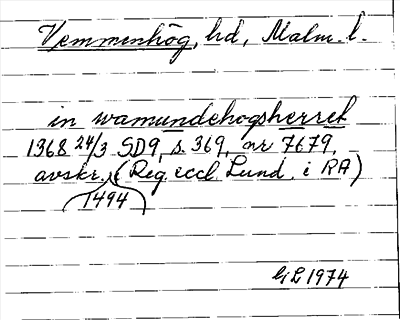 Vemmenhög, hd, Malm. l.
in wamundehogsherret
1368 24/3 SD9, s. 369, nr 7679,
avskr. (Reg. eccl. Lund. i RA)
1494
GL 1974